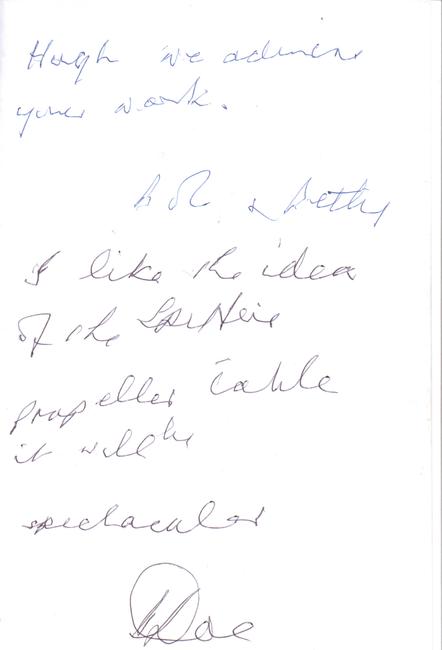 Hugh we admire
your work.
& Betty
I like the idea
of the Spitfire
propeller table
it will be
spectacular